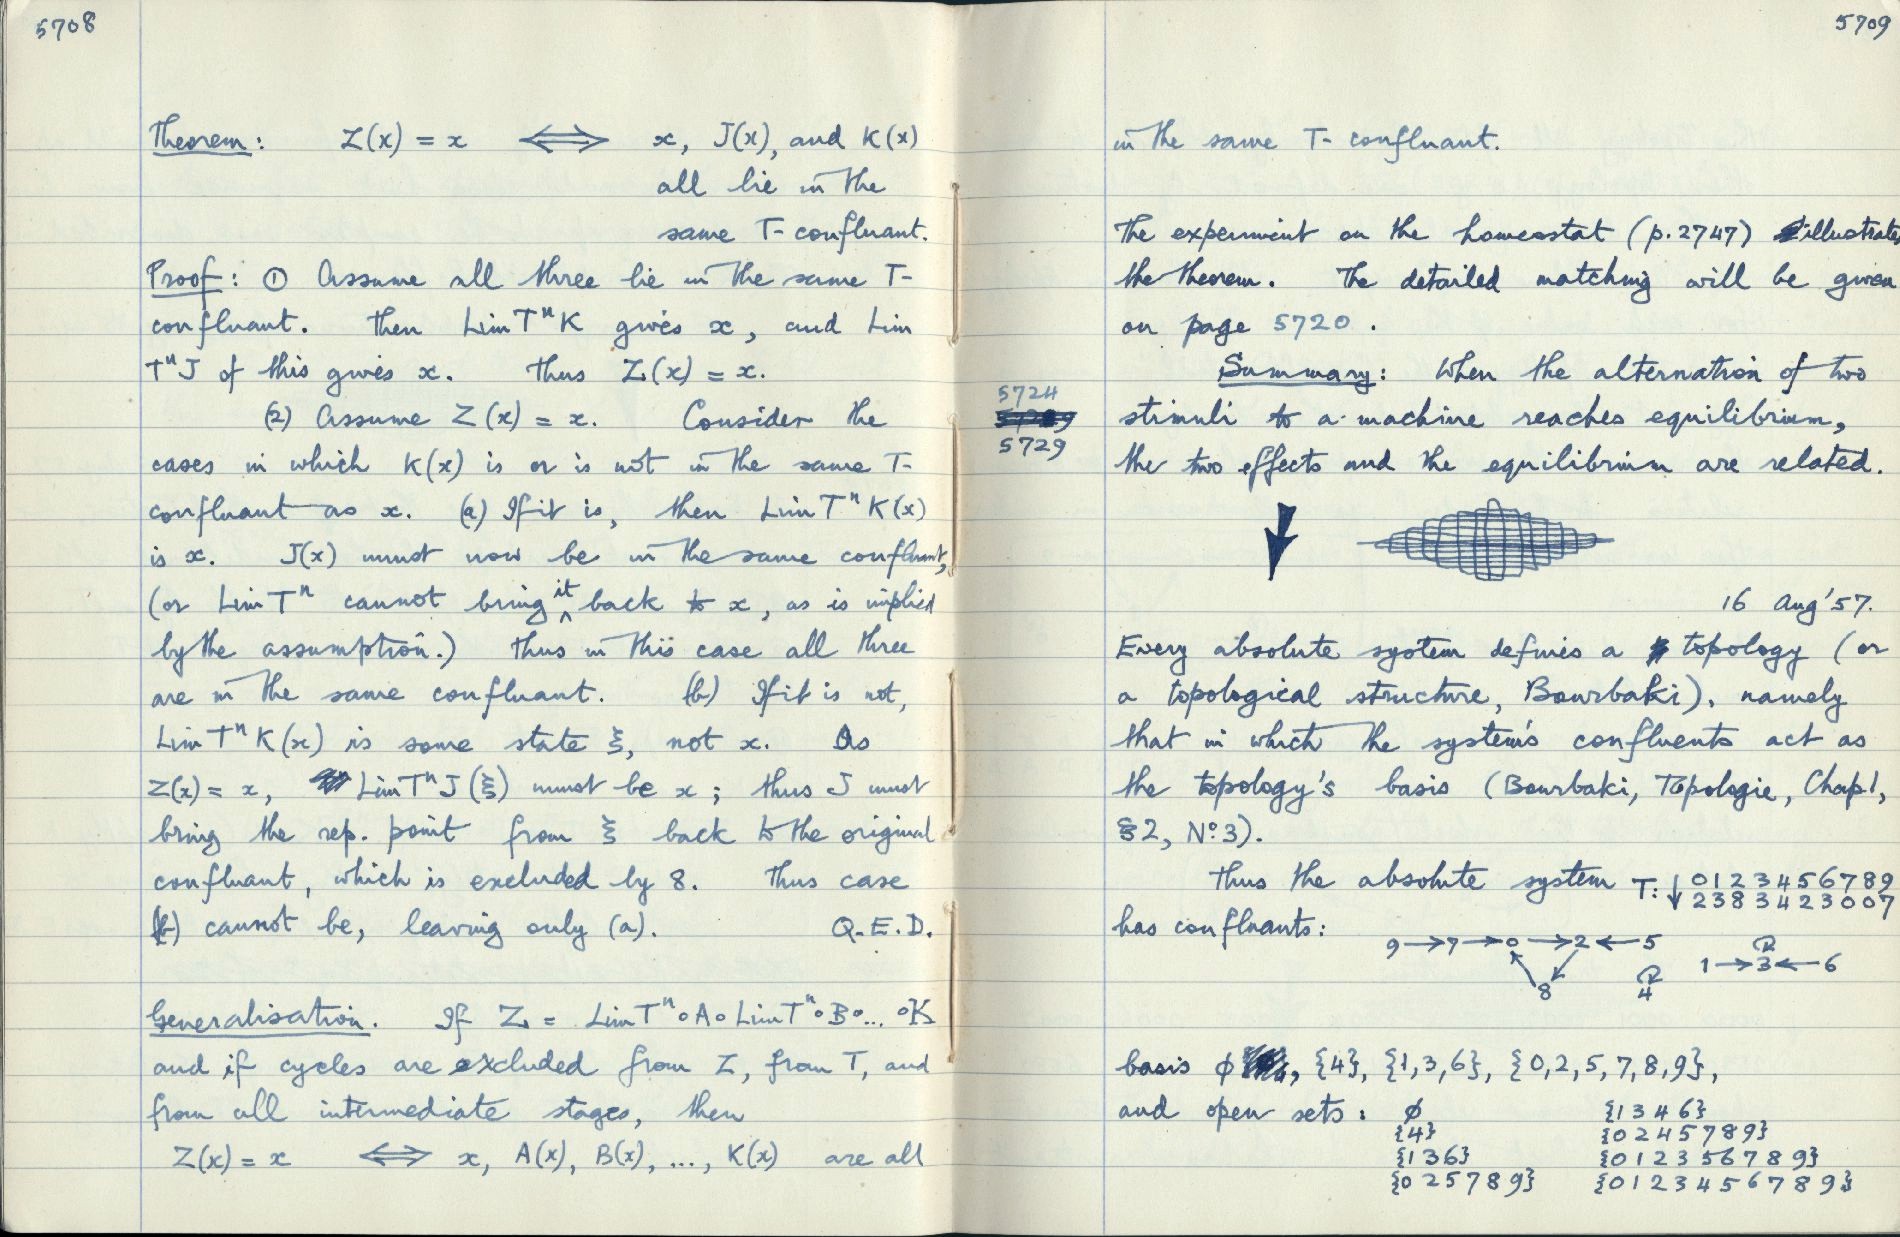 5708
Theorem: Z(x) = x ⟺ x, J(x), and K(x)
all lie in the
same T-confluant.
Proof: ① Assume all three lie in the same T-
confluant. Then Lim TⁿK gives x, and Lim
TⁿJ of this gives x. Thus Z(x) = x.
(2) Assume Z(x) = x. Consider the
cases in which K(x) is or is not in the same T-
confluant as x. (a) If it is, then Lim Tⁿ K(x)
is x. J(x) must now be in the same confluant,
(or Lim Tⁿ cannot bring it back to x, as is implied
by the assumption.) Thus in this case all three
are in the same confluant. (b) If it is not,
Lim Tⁿ K(x) is some state ξ, not x. As
Z(x) = x, Lim Tⁿ J(ξ) must be x; thus J must
bring the rep. point from ξ back to the original
confluant, which is excluded by 8. Thus case
(b) cannot be, leaving only (a). Q.E.D.
Generalisation. If Z = Lim Tⁿ∘A∘Lim Tⁿ∘B∘... ∘K
and if cycles are excluded from Z, from T, and
from all intermediate stages, then
Z(x) = x ⟺ x, A(x), B(x), ..., K(x) are all
5709
in the same T-confluant.
The experiment on the homeostat (p.2747) illustrates
the theorem. The detailed matching will be given
on page 5720.
Summary: When the alternation of two
5724
stimuli to a machine reaches equilibrium,
5729
the two effects and the equilibrium are related.
16 Aug '57.
Every absolute system defines a topology (or
a topological structure, Bourbaki), namely
that in which the system's confluents act as
the topology's basis (Bourbaki, Topologie, Chap 1,
§2, Nº3).
Thus the absolute system T: ↓ 0 1 2 3 4 5 6 7 8 9
2 3 8 3 4 2 3 0 0 7
has confluants:
9 → 7 → 0 → 2 ← 5
1 → 3 ← 6
8
4
basis φ, {4}, {1,3,6}, {0,2,5,7,8,9},
and open sets: φ {1 3 4 6}
{4} {0 2 4 5 7 8 9}
{1 3 6} {0 1 2 3 5 6 7 8 9}
{0 2 5 7 8 9} {0 1 2 3 4 5 6 7 8 9}